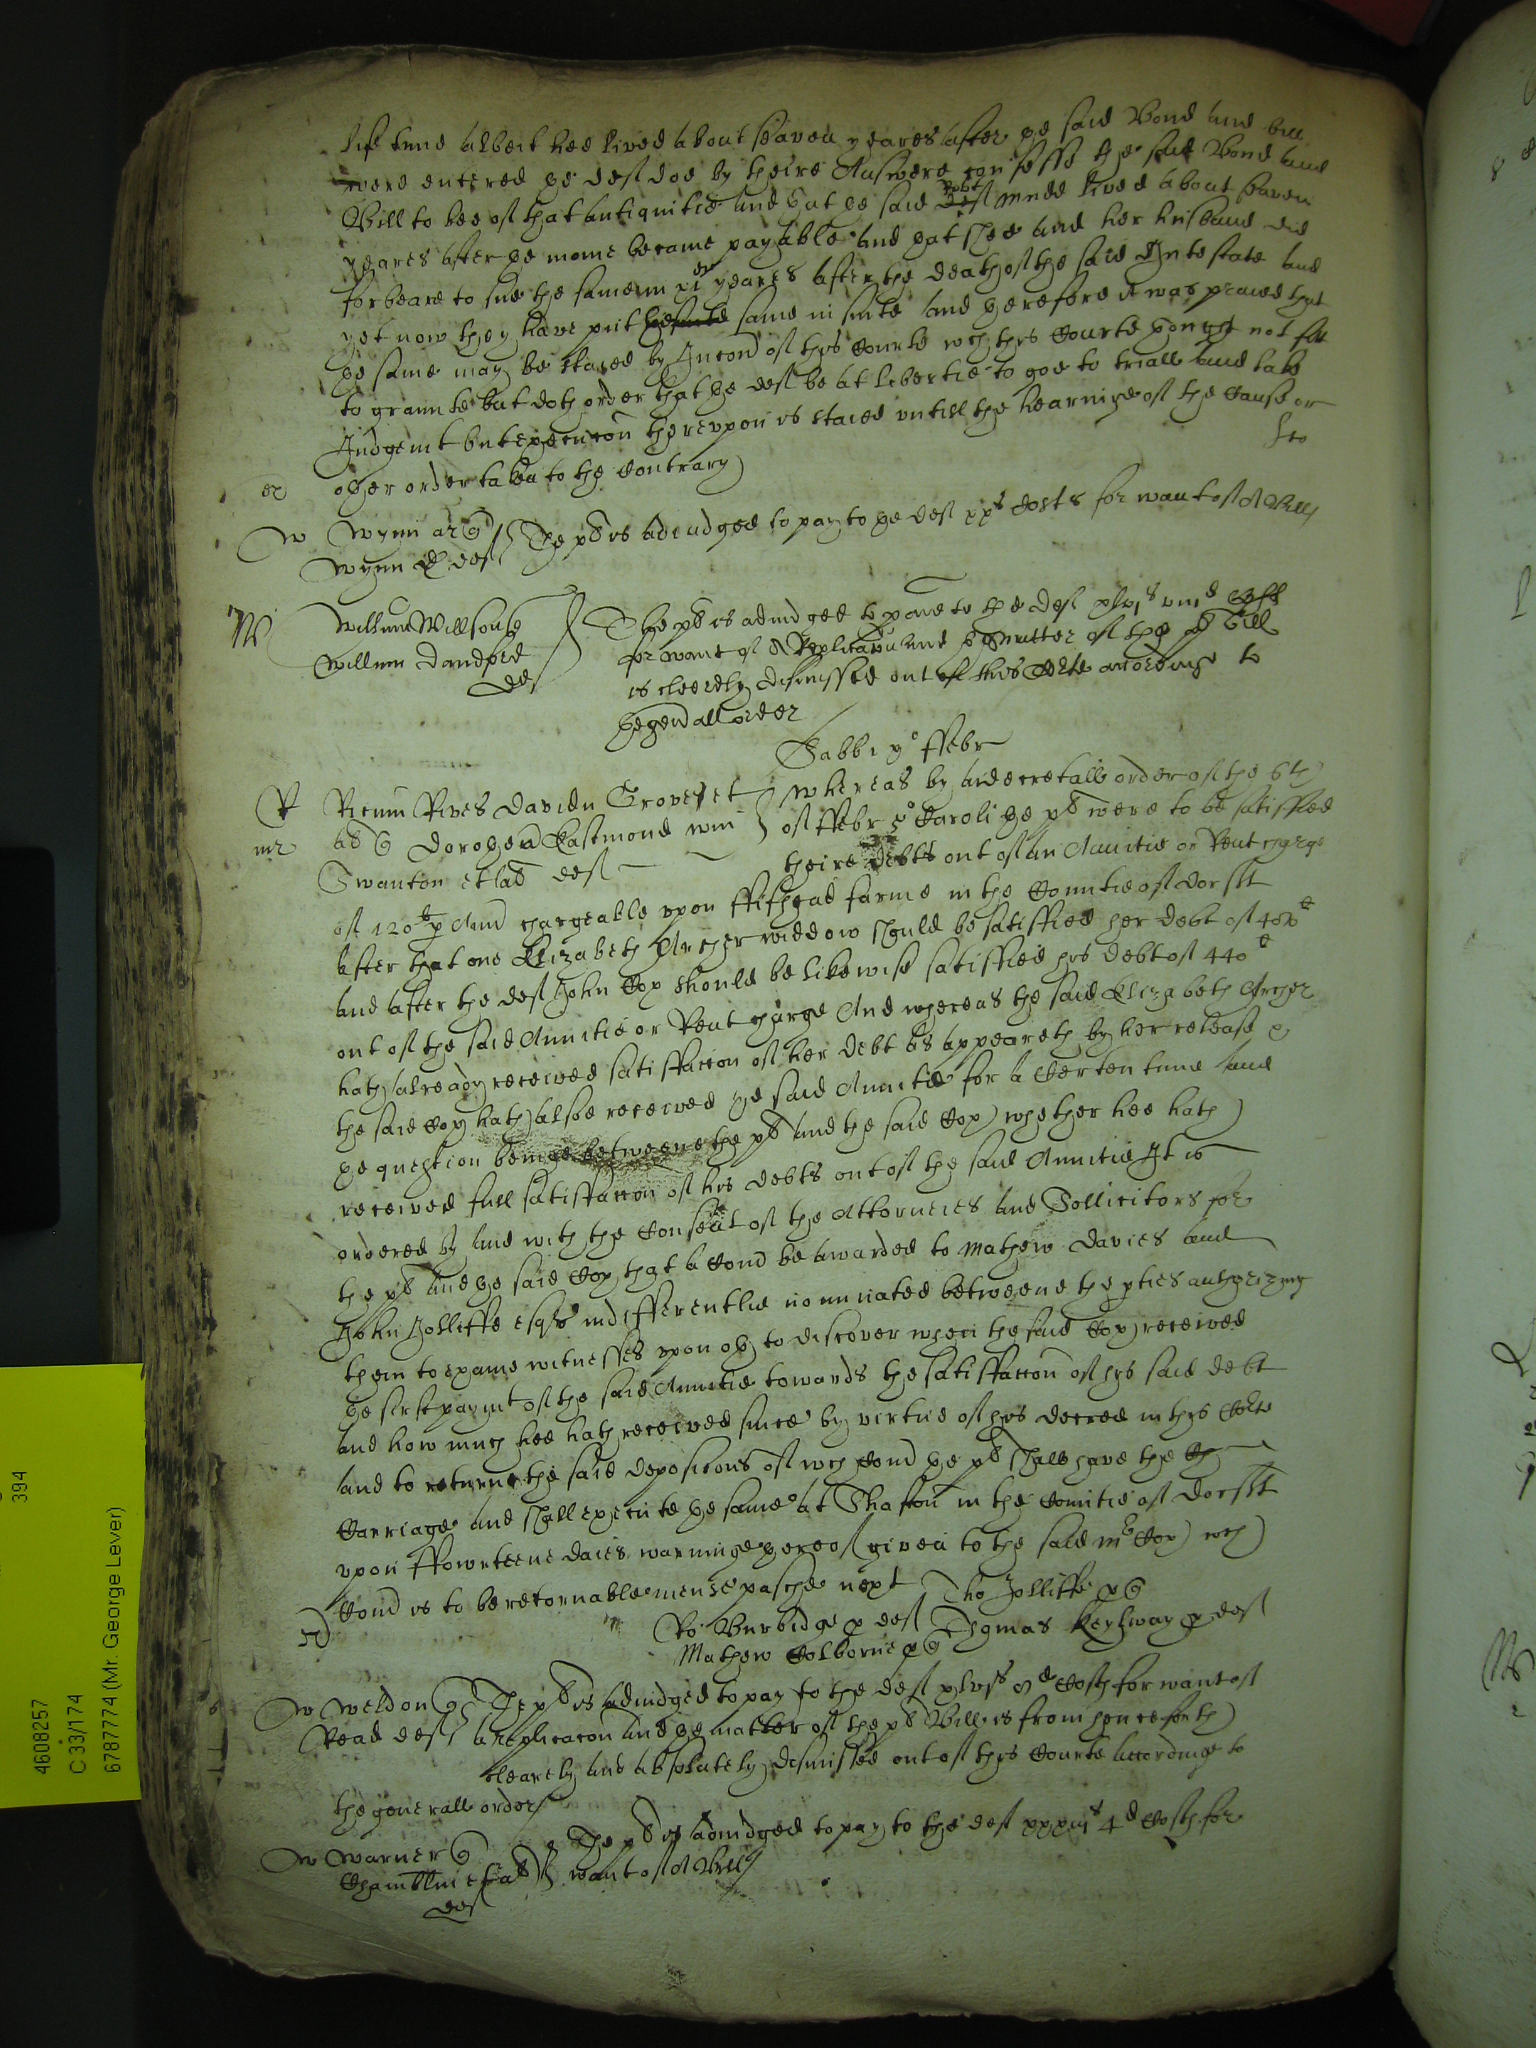 life time albeit hee lived about seaven yeares after ye said Bond and bill
were entered ye def doe by theire Answere confesse the said Bond and
Bill to bee of that antiquitie and yat ye said Robt lived about seaven
yeares after ye monie became payable and yat shee and her husband did
forbeare to sue the same in xi yeares after the death of the said Intestate and
yet now they have put same in suite and yerefore it was praied that
ye same may be staied by Iniuncon of this Courte wch this Courte thought not fitt
to graunte but doth order that ye def be at libertie to goe to triall and take
Iudgemt but execucon thereupon is staied untill the hearinge of the Cause or
other order taken to the Contrary
W Wynn ar
Wynn def The pl is adiudged to pay to ye def xxs Costs for want of A Bill
W Willm Willson
Willm Dandord The pl is adiudged to paie to the def
def for want of A Replicacon and ye matter of the pl Bill
is cleerely dismissed out of this Corte accordinge to
ye genall order
Sabbi Febr
R Ricum Rives Davidn Grove et Whereas by a decretall order of the 6th
al Dorothea Eastmond Willm of Febr 5o Caroli ye pl were to be satisfied
Swanton et al def theire debts out of an Anuitie or Rent charge
of 120li p Ann chargeable upon Fifhead farme in the Countie of Dorstt
after that one Elizabeth Archer widdow should be satisfied her debt of 400li
and after the def John Cox should be likewise satisfied his debt of 440li
out of the said Anuitie or Rent charge And whereas the said Elizabeth Archer
hath already received satisfaccon of her debt as appeareth by her release &
the said Cox hath alsoe received ye said Anuitie for a Certen time and
ye question beinge betweene the pl and the said Cox whether hee hath
received full satisfaccon of his debts out of the said Anuitie It is
ordered by and with the Consent of the Attorneies and Sollicitors for
the pl and ye said Cox that a Comn be awarded to Mathew Davies and
John Jolliffe esqrs indifferentlie nominated betweene the pties authorizing
them to examine witnesses upon oth to discover when the said Cox received
ye first paymt of the said Anuitie towards the satisfaccon of his said debt
and how much hee hath received since by virtue of his decree in this Corte
and to returne the said deposicons of wch Comn ye pl shall have the
Carriage and shall execute ye same at Shafton in the Countie of Dorstt
upon Fowrteene daies warninge yereof given to the said mr Cox wch
Comn is to be retornable mense pasche next Tho: Jolliffe p q
Ro: Burbidge p def Thomas Keylway p def
Mathew Colborne p q
W Weldon The pl is adiudged to pay to the def Costs for want of
Read def a replicacon and ye matter of the pl Bill is from henceforth
clearely and absolutely dismissed out of this Courte accordinge to
the generall order
W Warner The pl is adiudged to pay to the def 4d Costs for
et al want of A Bill
def
394
4608257
C 33/174
6787774 (Mr. George Lever)